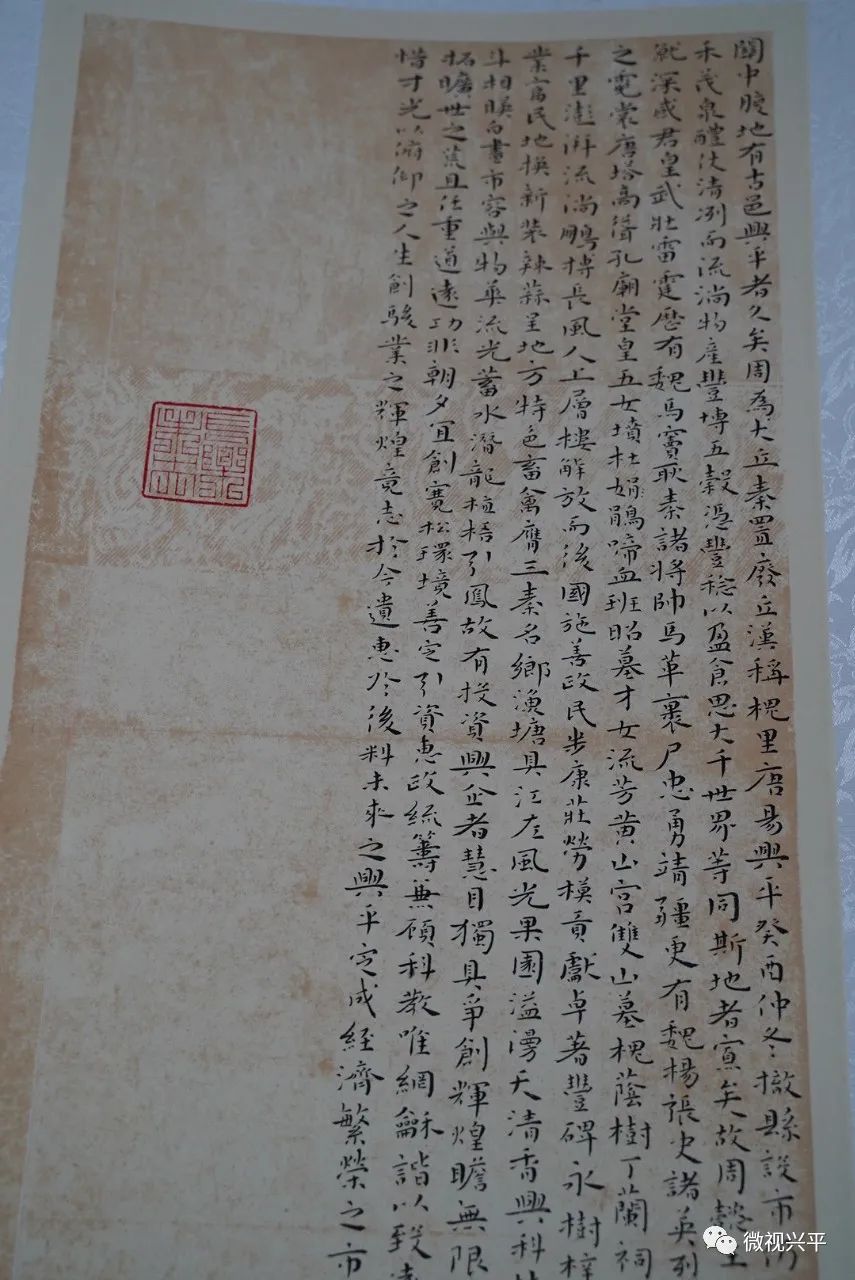 關中腹地有古邑興平者久矣周為犬丘秦置廢丘漢稱槐里唐易興平癸酉仲冬撤縣設市
禾茂泉醴伏清冽而流淌物產豐博五穀憑豐稔以盈倉思大千世界等同斯地者寡矣故周懿王
就深感君皇武壯雷霆歷有魏馬竇耿秦諸將帥馬革裹尸忠勇靖疆更有魏楊張史諸英烈
之霓裳唐塔高聳孔廟堂皇五女墳杜鵑啼血班昭墓才女流芳黃山宮雙山墓槐蔭樹丁蘭祠
千里澎湃流淌鵬摶長風人上層樓解放而後國施善政民步康莊勞模貢獻卓著豐碑永樹梓
業富民地換新裝辣蒜呈地方特色畜禽膺三秦名鄉漁塘具江左風光果園溢漫天清香興科
斗相映白晝市容與物華流光蓄水潛龍植梧引鳳故有投資興企者慧目獨具爭創輝煌瞻無限
拓曠世之荒且任重道遠功非朝夕宜創寬松環境善定引資惠政統籌兼顧科教唯網龢諧以致遠
惜寸光以俯仰之人生創駿業之輝煌竟志於今遺惠於後料未來之興平定成經濟繁榮之市
微视兴平